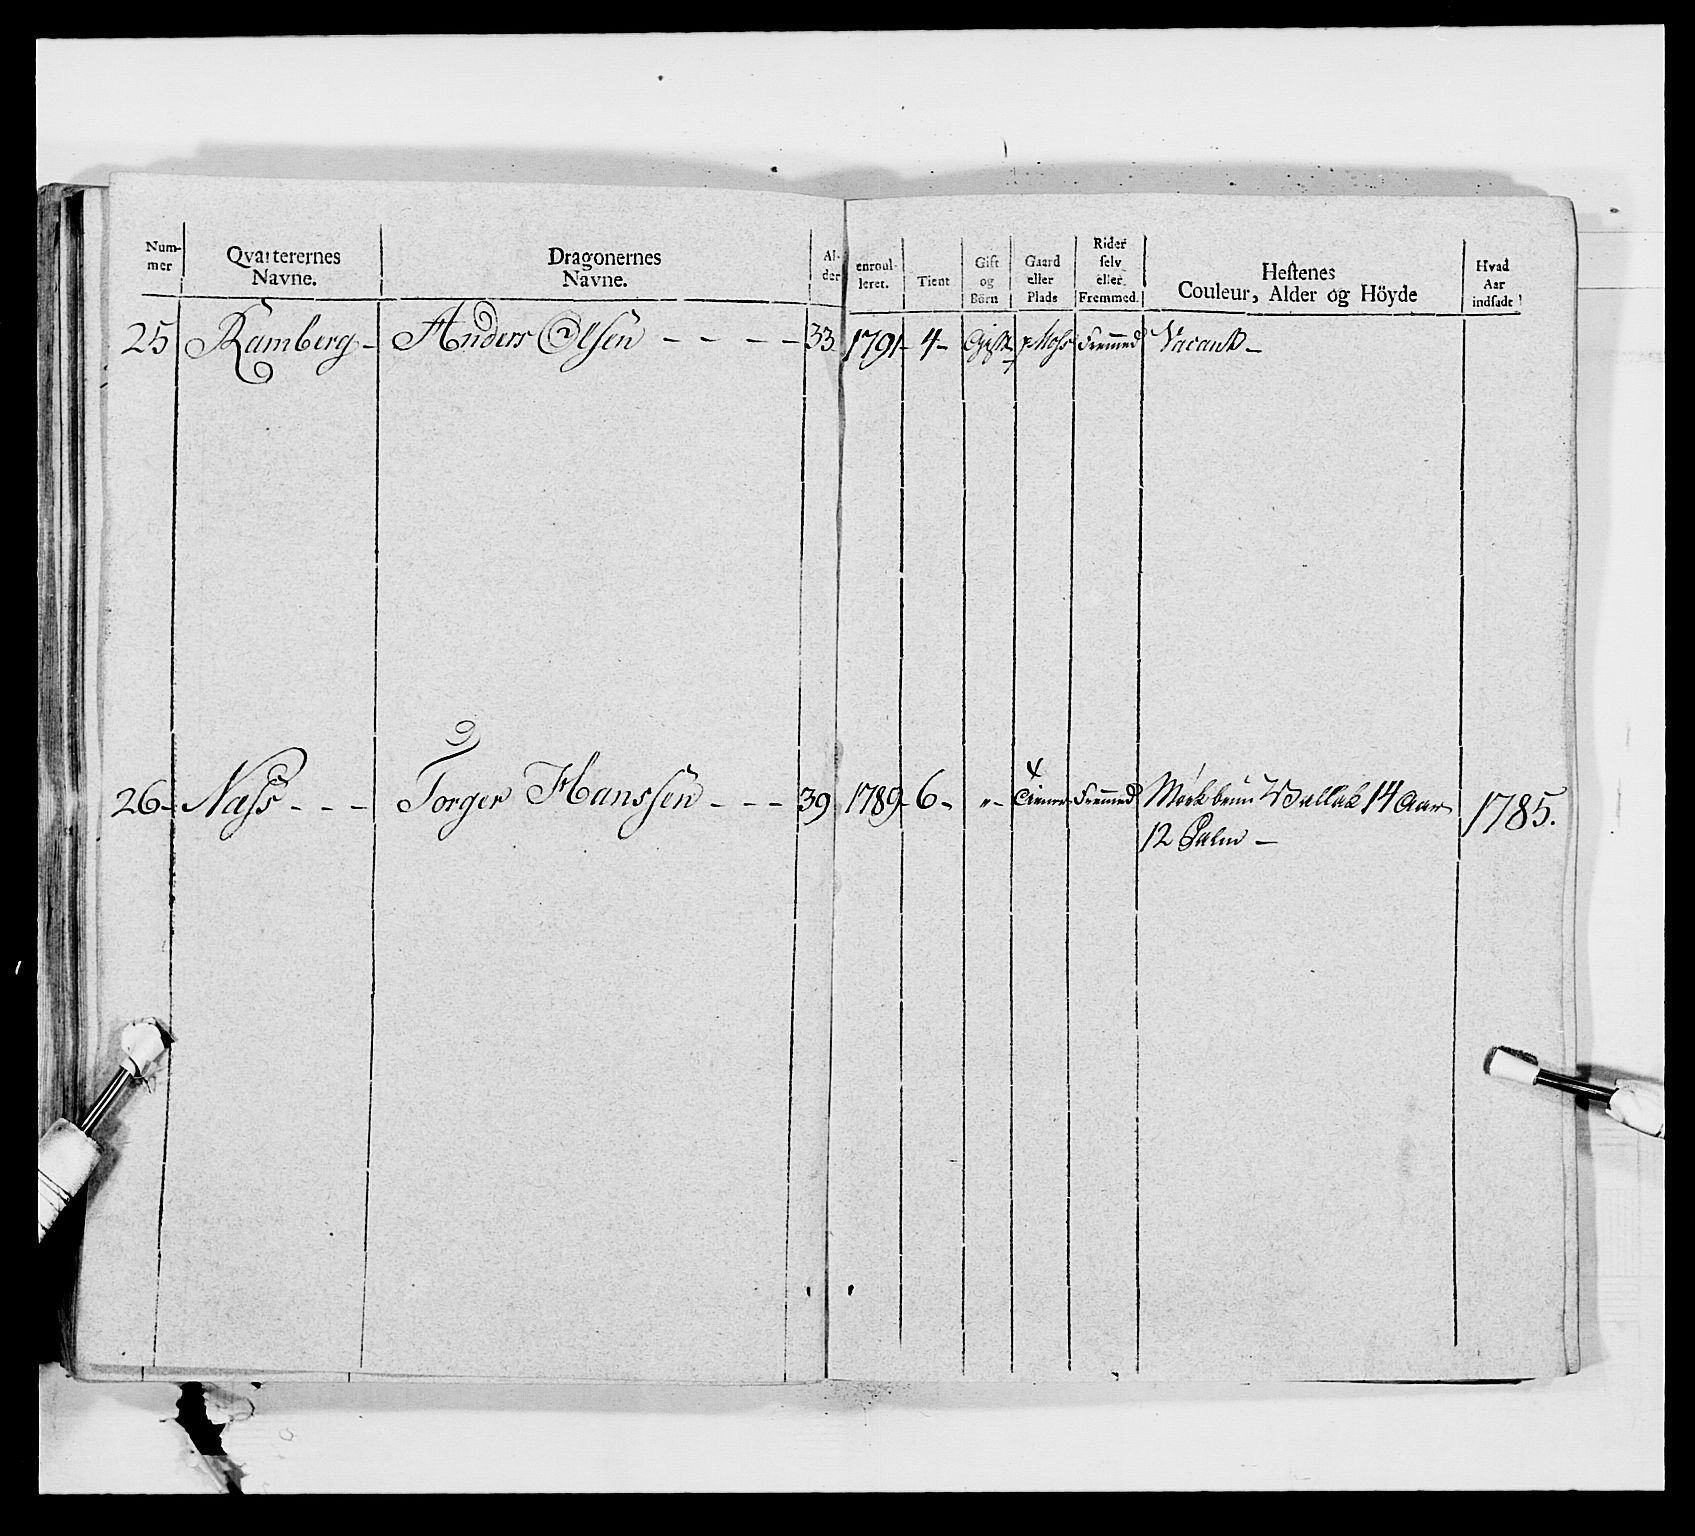 Num-
mer
Qvarterernes
Navne.
Dragonernes
Navne.
Al-
der
enroul-
leret.
Tient
Gift
og
Börn
Gaard
eller
Plads
Rider
selv
eller
Fremmed.
Hestenes
Couleur, Alder og Höyde
Hvad
Aar
indsadt
25 Ramberg - Anders Olsen - - - - 33. 1791 - 4 - Gift Moss Fremmed Vacant -
26 - Næss - - - Torger Hanssen - - - 39 1789 - 6 - "- Tiener Fremmed Mörkbrun Wallak 14 Aar 1785.
12 Palm -